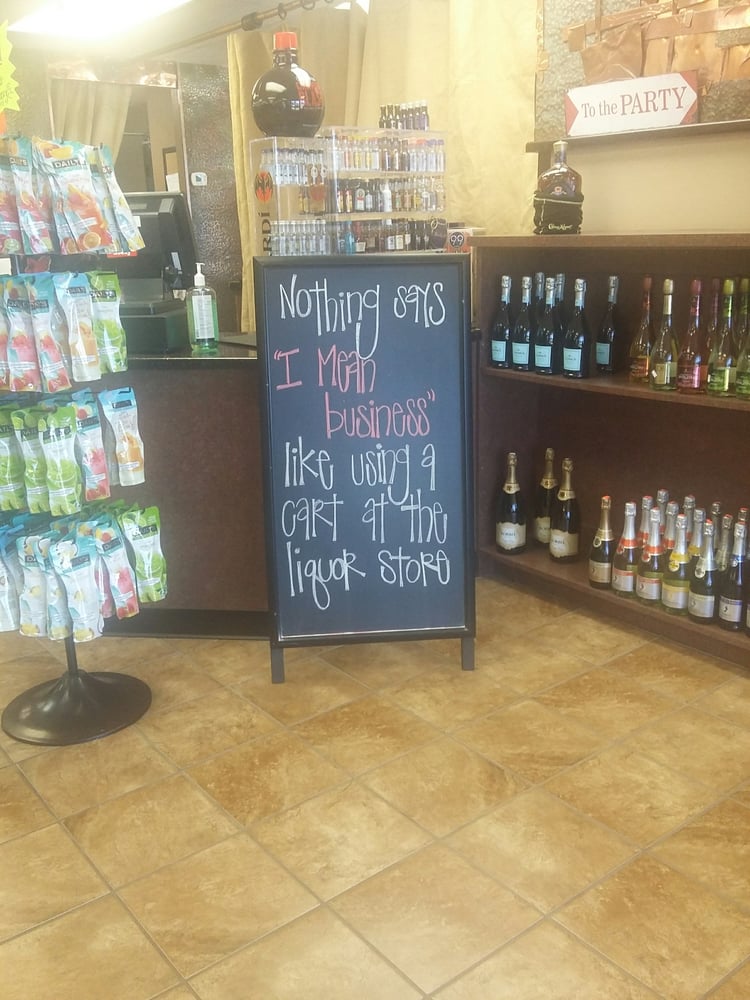 To the PARTY
DAILY'S
Crown Royal
99
Nothing says
"I Mean
business"
like using a
cart at the
liquor store